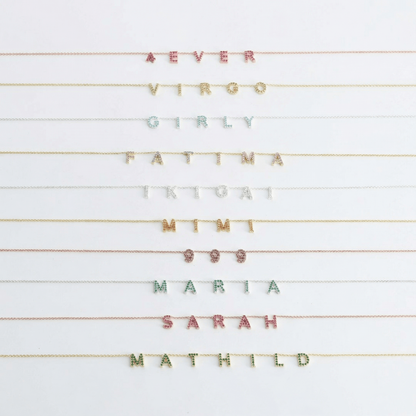 4EVER
VIRGO
GIRLY
FATIMA
IKIGAI
MIMI
999
MARIA
SARAH
MATHILD